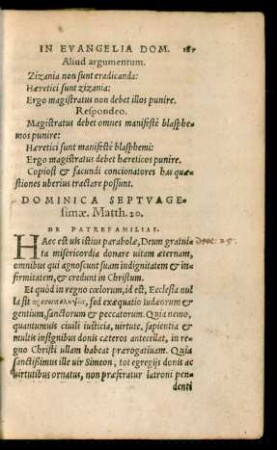 IN EVANGELIA DOM. 187
Aliud argumentum.
Zizania non sunt eradicanda:
Hæretici sunt zizania:
Ergo magistratus non debet illos punire.
Respondeo.
Magistratus debet omnes manifestè blasphe-
mos punire:
Hæretici sunt manifestè blasphemi:
Ergo magistratus debet hæreticos punire.
Copiosi & facundi concionatores has quæ-
stiones uberius tractare possunt.
DOMINICA SEPTVAGE-
simæ. Matth. 20.
DE PATREFAMILIAS.
HAec est uis istius parabolæ, Deum gratui-
ta misericordia donare uitam æternam,
omnibus qui agnoscunt suam indignitatem & in-
firmitatem, & credunt in Christum.
Et quòd in regno cœlorum, id est, Ecclesia nul
la sit, sed exæquatio iudæorum &
gentium, sanctorum & peccatorum. Quia nemo,
quantumuis ciuili iusticia, uirtute, sapientia &
multis insignibus donis cæteros antecellat, in re-
gno Christi ullam habeat prærogatiuam. Quia
sanctissimus ille uir Simeon, tot egregijs donis ac
uirtutibus ornatus, non præfratur latroni pen-
denti